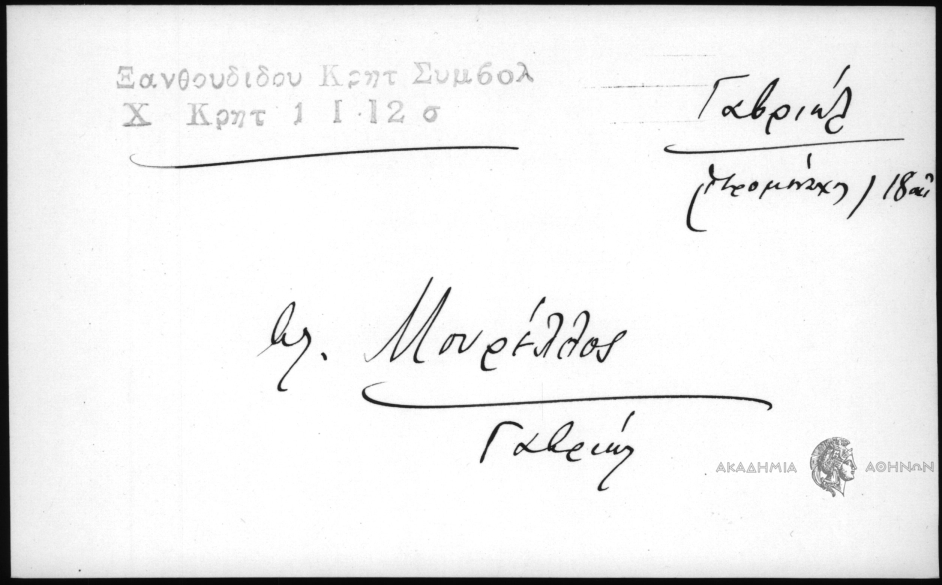 Ξανθουδιδου Κρητ Συμβολ
Χ Κρητ 1 Ι·12 σ
Γαβριήλ
(Ιερομόναχος) 18αι
βλ. Μουρέλλος
Γαβριήλ
ΑΚΑΔΗΜΙΑ ΑΘΗΝΩΝ